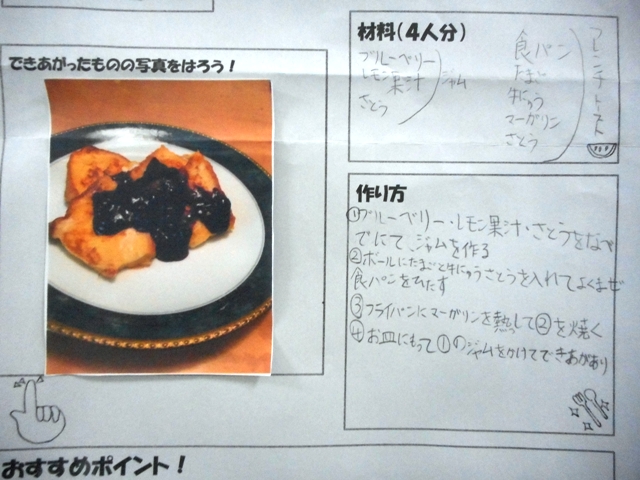 できあがったものの写真をはろう！
材料(４人分)
ブルーベリー
レモン果汁
さとう
ジャム
食パン
たまご
牛にゅう
マーガリン
さとう
フレンチトースト
作り方
①ブルーベリー・レモン果汁・さとうをなべ
でにて、ジャムを作る
②ボールにたまごと牛にゅうさとうを入れてよくまぜ
食パンをひたす
③フライパンにマーガリンを熱して②を焼く
④お皿にもって①のジャムをかけてできあがあり
おすすめポイント！